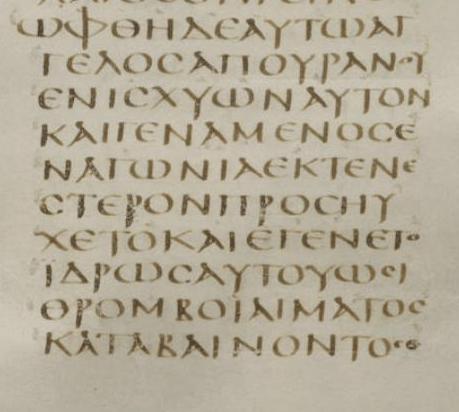 ωφθη δε αυτω αγ
γελος απο ουρανου
ενισχυων αυτον
και γεναμενος ε
ν αγωνια εκτενε
στερον προσηυ
χετο και εγενετο
ϊδρως αυτου ωσι
θρομβοι αιματος
καταβαινοντος